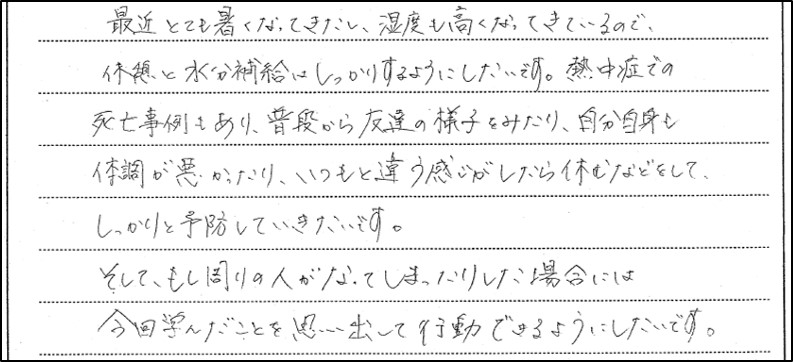 最近とても暑くなってきたし、湿度も高くなってきているので、
休憩と水分補給はしっかりするようにしたいです。熱中症での
死亡事例もあり、普段から友達の様子をみたり、自分自身も
体調が悪かったり、いつもと違う感じがしたら休むなどをして、
しっかりと予防していきたいです。
そして、もし周りの人がなってしまったりした場合には
今回学んだことを思い出して行動できるようにしたいです。